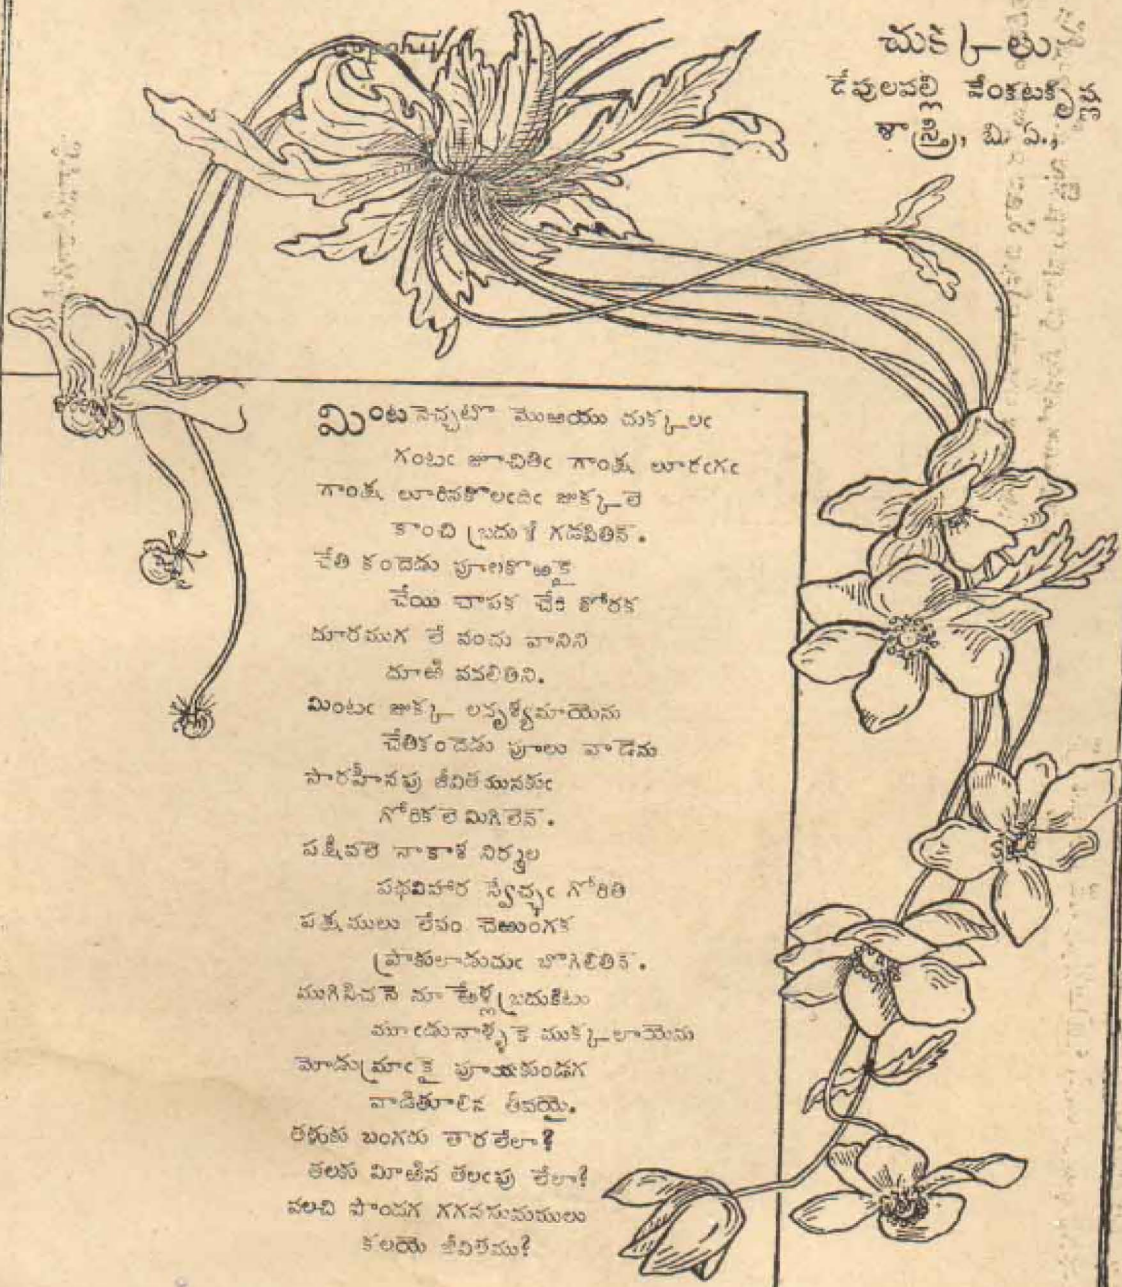 చుక్కలు
దేవులపల్లి వేంకటకృష్ణ
శాస్త్రి, బి. ఏ.,
మింట నెచ్చటొ మొఱయు చుక్కలఁ
గంటఁ జూచితిఁ గాంక్ష లూరఁగఁ
గాంక్ష లూరినకొలఁదిఁ జుక్కలె
కాంచి బ్రదుకే గడపితిన్.
చేతి కందెడు పూలకొఱకై
చేయి చాపక చేరి కోరక
దూరముగ లే వంచు వానిని
దూఱి వదలితిని.
మింటఁ జుక్క లదృశ్యమాయెను
చేతికందెడు పూలు వాడెను
సారహీనపు జీవితమునకుఁ
గోరికలె మిగిలెన్.
పక్షివలె నాకాశ నిర్మల
పథవిహార స్వేచ్ఛఁ గోరితి
పక్షములు లేవం చెఱుంగక
ప్రాకులాడుచుఁ బొగిలితిన్.
ముగిసిచనె నూ ఱేళ్ల బ్రదుకిటు
మూఁడునాళ్ళకె ముక్కలాయెను
మోడుమ్రాఁకై పూయకుండగ
వాడితూలిన తీవయై.
తళుకు బంగరు తారలేలా?
తలకు మీఱిన తలఁపు లేలా?
వలచి పొందగ గగనసుమములు
కలయె జీవితము?